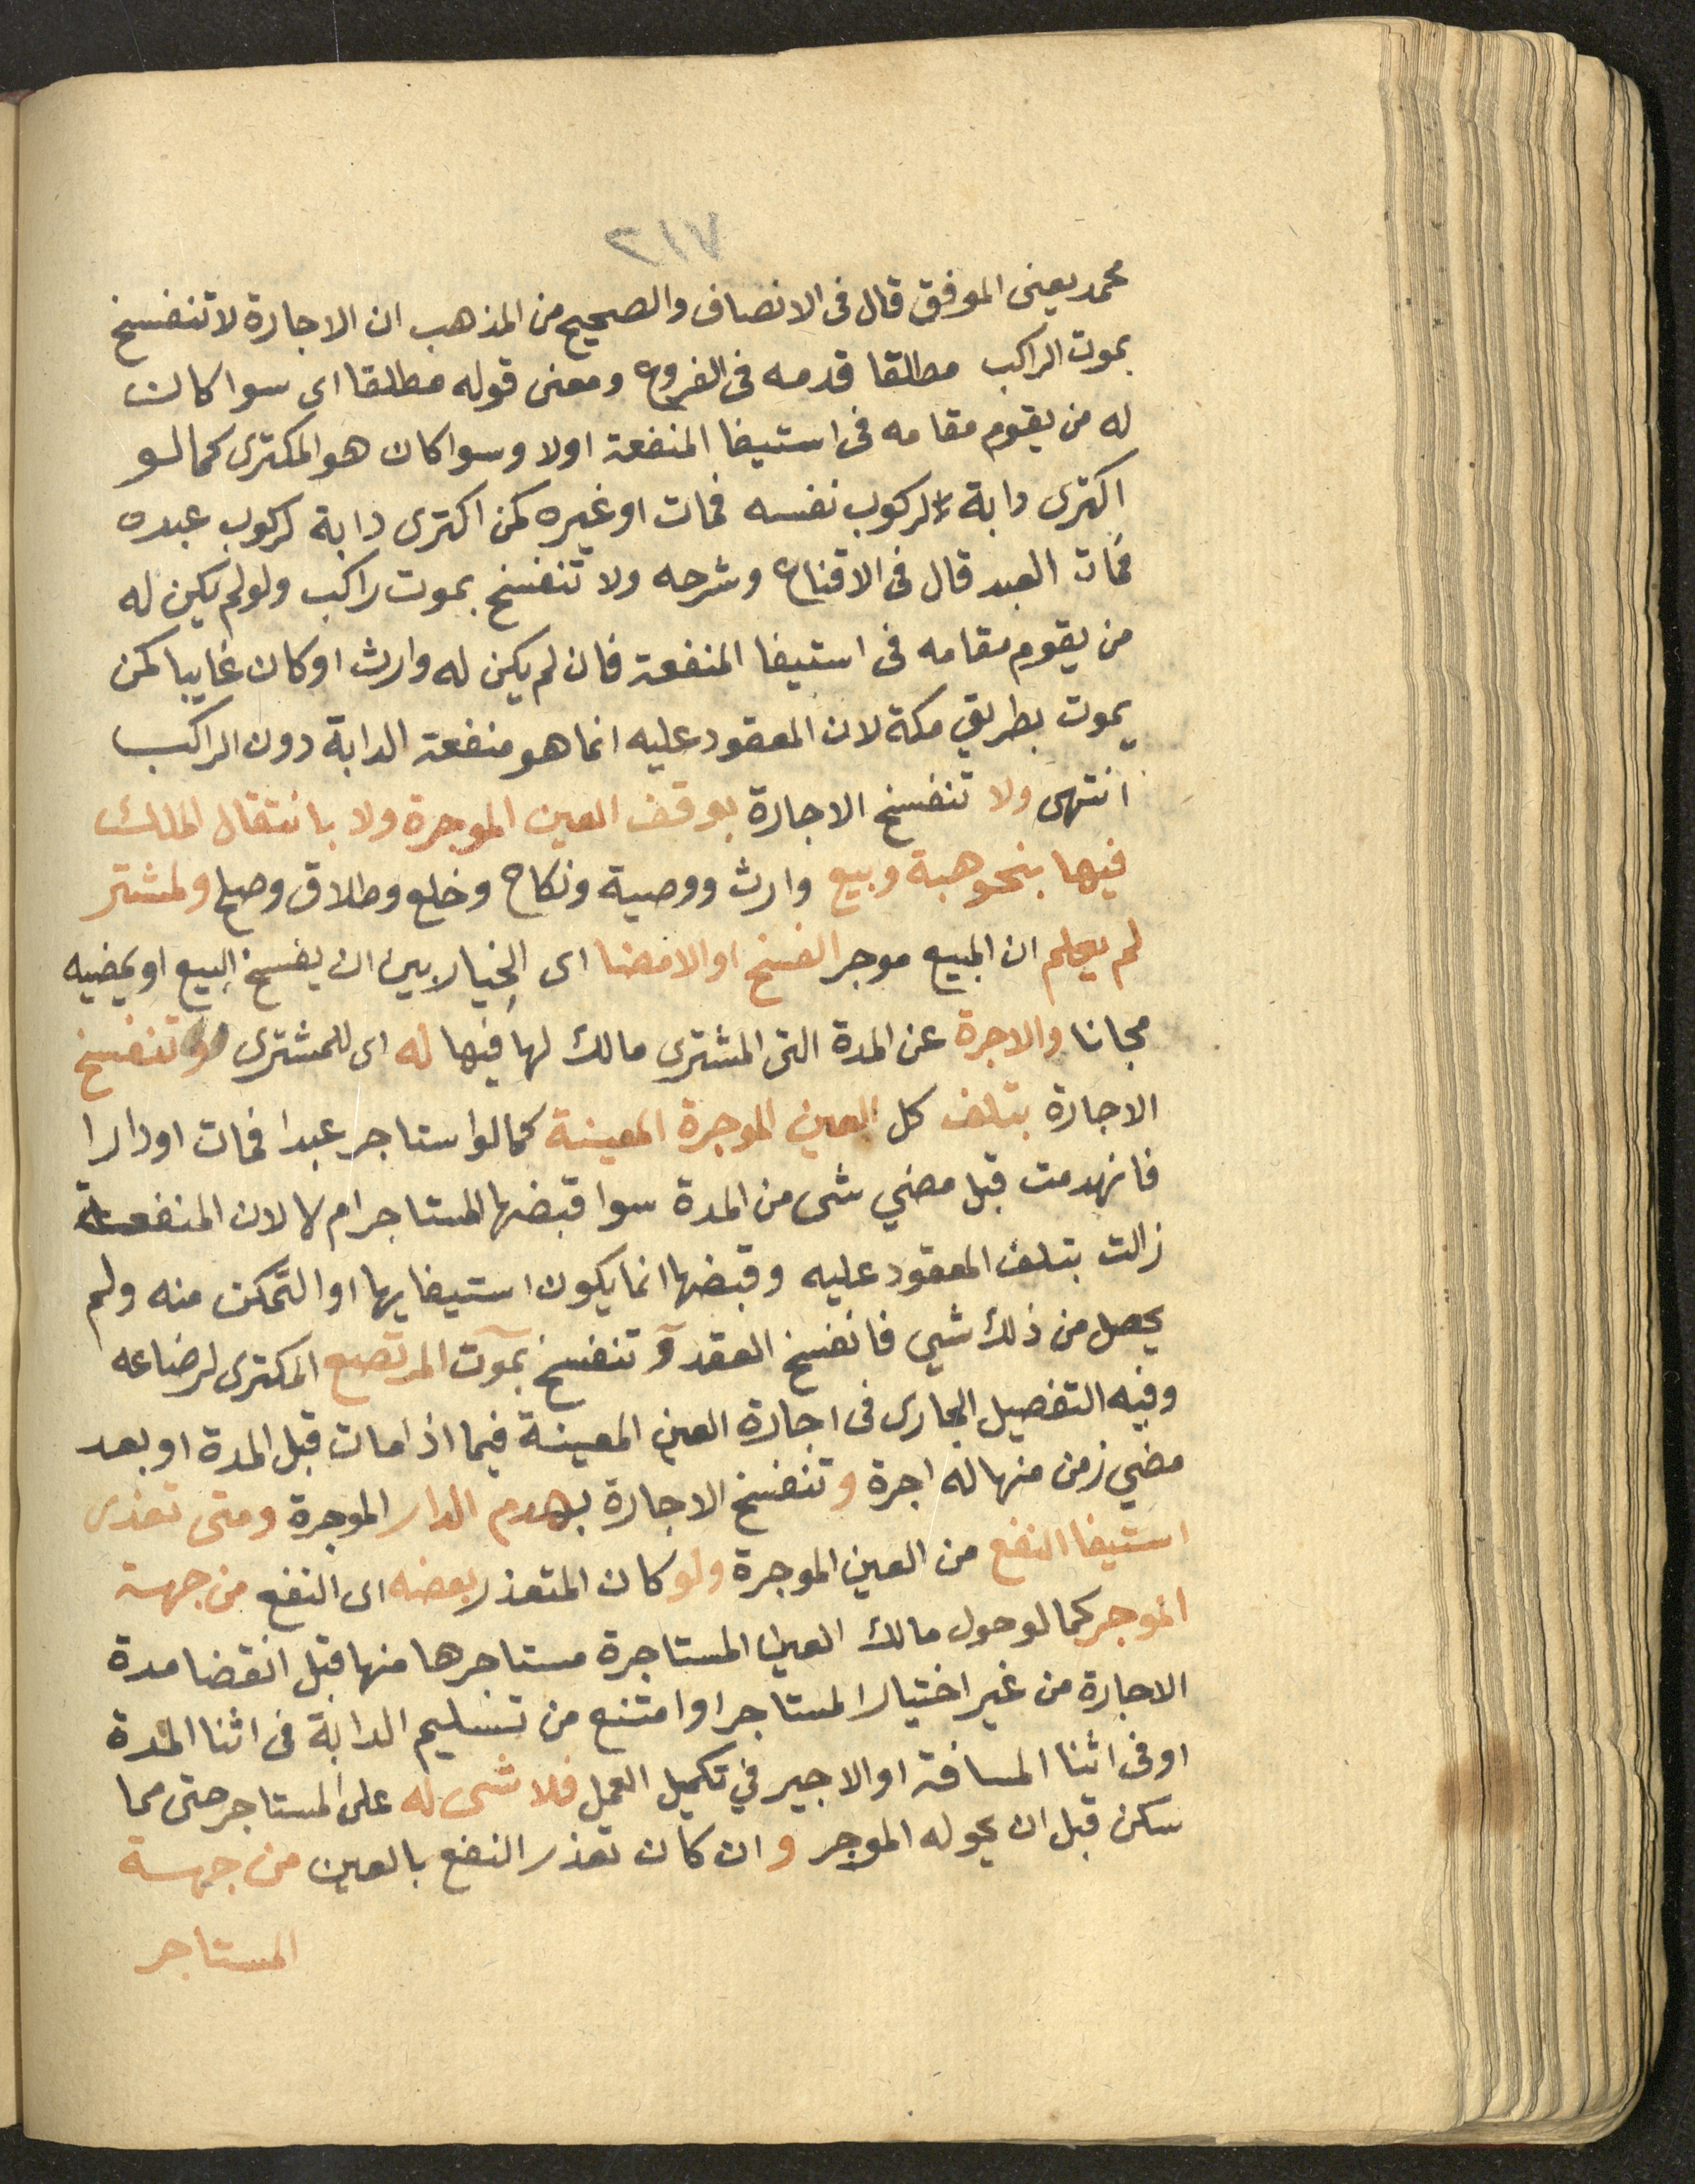 ٢١٧
محمد يعنى الموفق قال فى الانصاف والصحيح من المذهب ان الاجارة لا تنفسخ
بموت الراكب مطلقا قدمه فى الفروع ومعنى قوله مطلقا اى سوا كان
له من يقوم مقامه فى استيفا المنفعة اولا وسوا كان هو المكترى كما لو
اكترى دابة لركوب نفسه فمات او غيره كمن اكترى دابة لركوب عبده
فمات العبد قال فى الاقناع وشرحه ولا تنفسخ بموت راكب ولو لم يكن له
من يقوم مقامه فى استيفا المنفعة فان لم يكن له وارث او كان غايبا كمن
يموت بطريق مكة لان المعقود عليه انما هو منفعة الدابة دون الراكب
انتهى ولا تنفسخ الاجارة بوقف العين الموجرة ولا بانتقال الملك
فيها بنحو هبة وبيع وارث ووصية ونكاح وخلع وطلاق وصلح ولمشتر
لم يعلم ان المبيع موجر الفسخ او الامضا اى الخيار بين ان يفسخ البيع او يمضيه
مجانا والاجرة عن المدة التى المشترى مالك لها فيها له اى للمشترى وتنفسخ
الاجارة بتلف كل العين الموجرة المعينة كما لو استاجر عبدا فمات او دارا
فانهدمت قبل مضي شى من المدة سوا قبضها المستاجر ام لا لان المنفعة
زالت بتلف المعقود عليه وقبضها انما يكون استيفايها او التمكن منه ولم
يحصل من ذلك شي فانفسخ العقد و تنفسخ بموت المرتضع المكترى لرضاعه
وفيه التفصيل الجارى فى اجارة العين المعينة فيما اذا مات قبل المدة او بعد
مضي زمن منها له اجرة وتنفسخ الاجارة بهدم الدار الموجرة ومتى تعذر
استيفا النفع من العين الموجرة ولو كان المتعذر بعضه اى النفع من جهة
الموجر كما لو حول مالك العين المستاجرة مستاجرها منها قبل انقضا مدة
الاجارة من غير اختيار المستاجر او امتنع من تسليم الدابة فى اثنا المدة
او فى اثنا المسافة او الاجير في تكميل العمل فلا شى له على المستاجر حتى مما
سكن قبل ان يحوله الموجر وان كان تعذر النفع بالعين من جهة
المستاجر